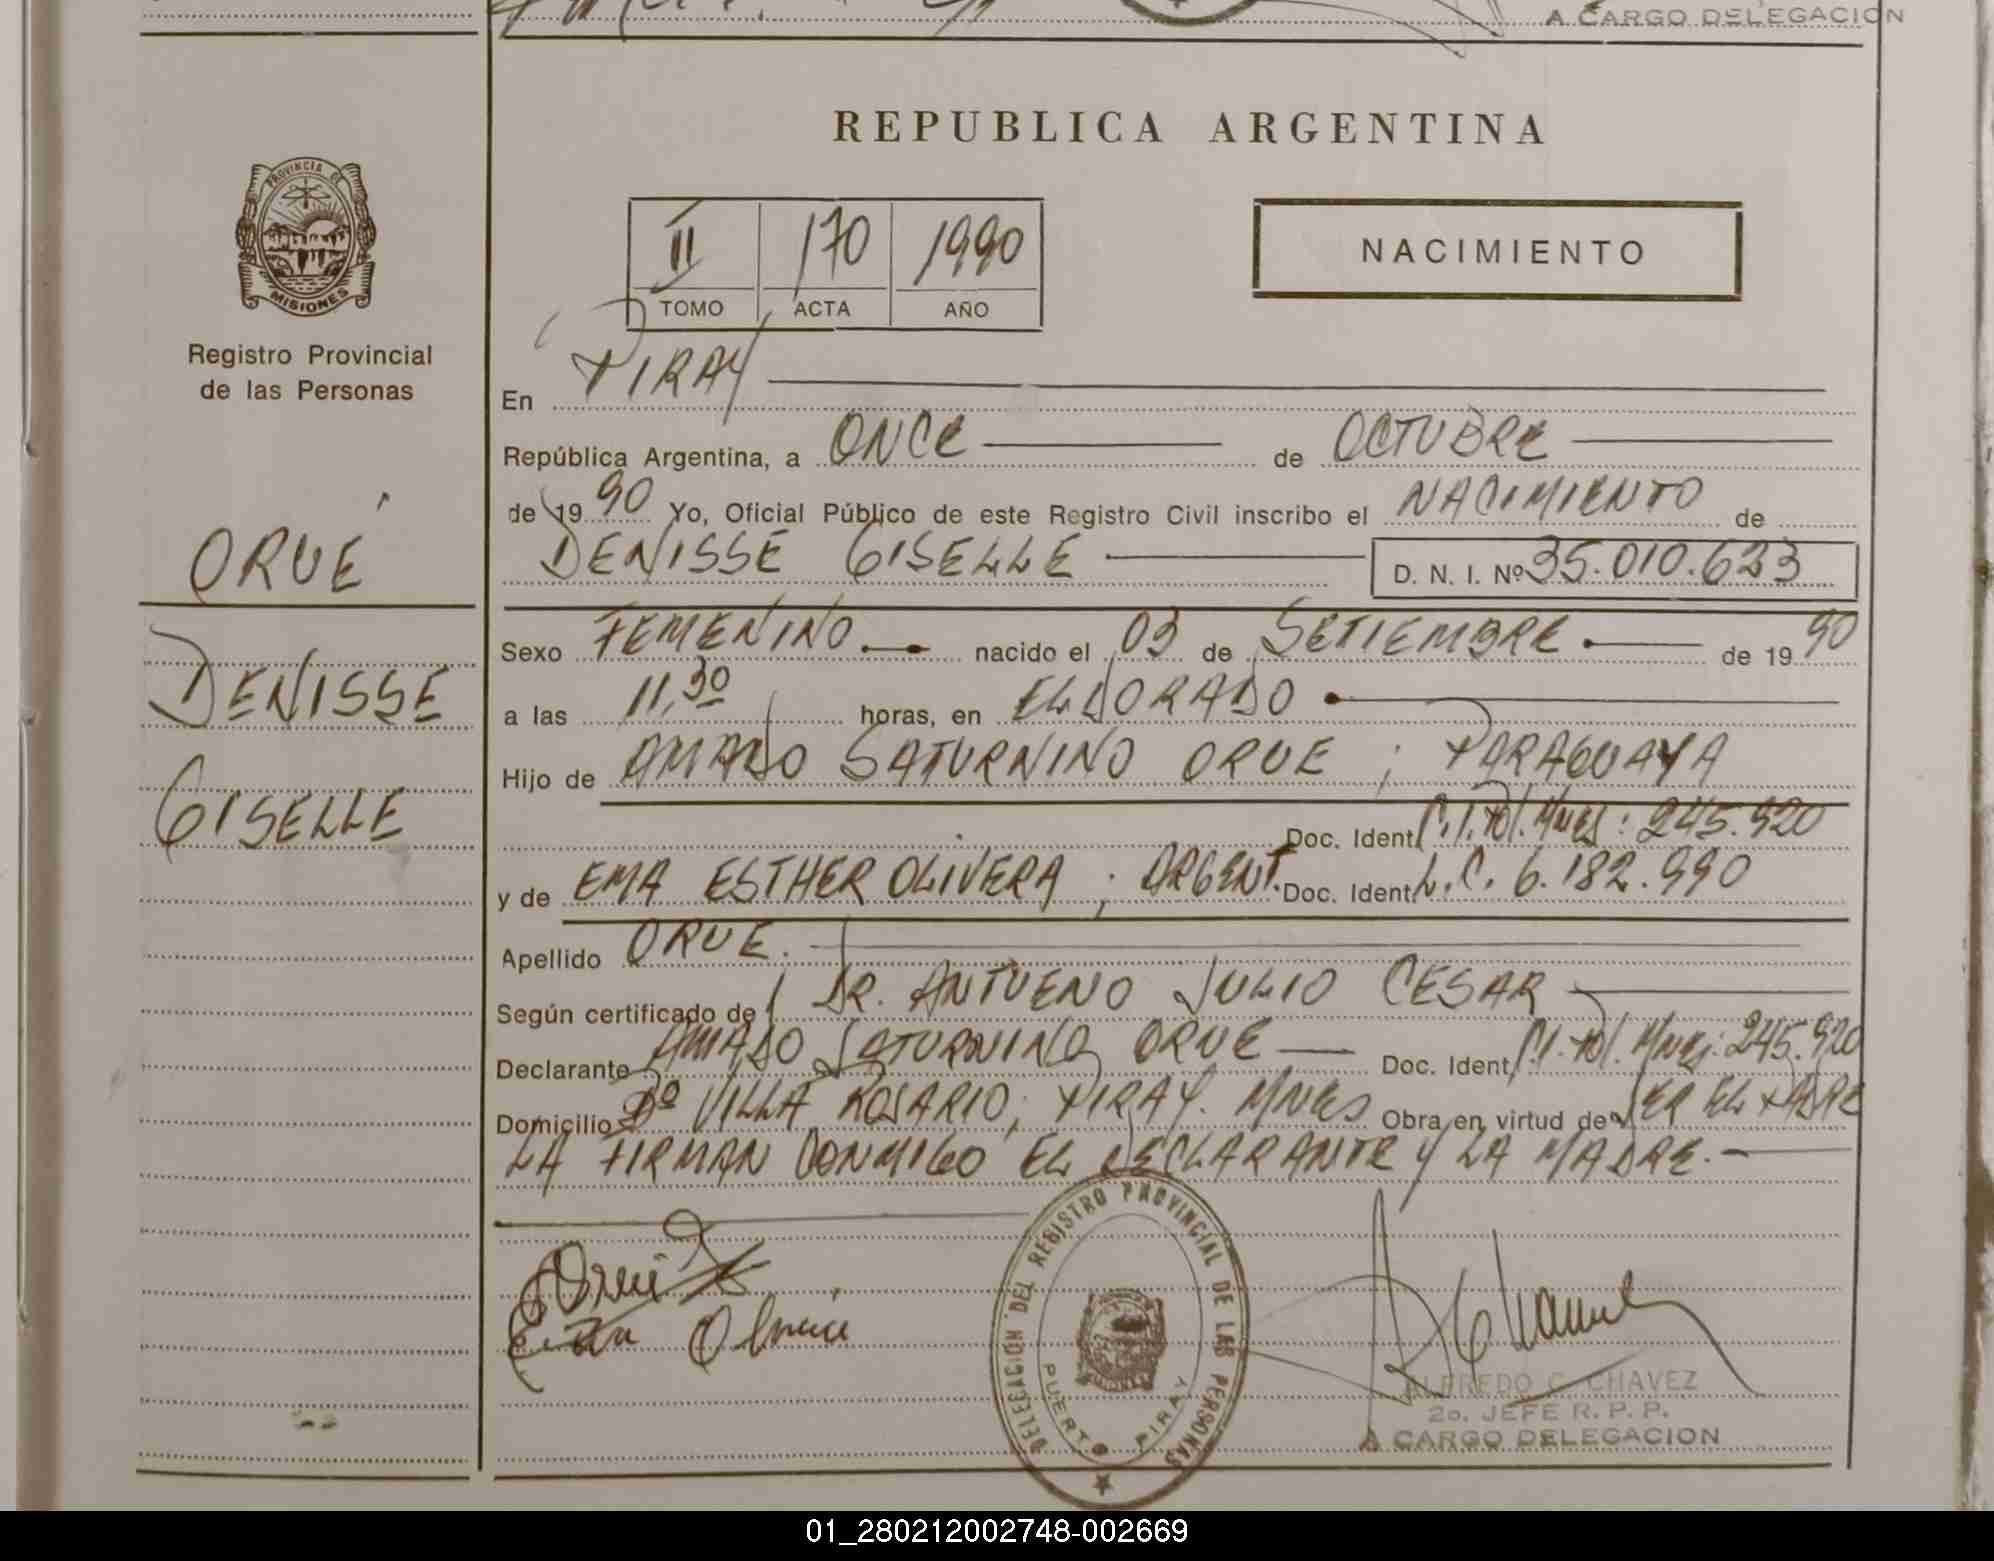 A CARGO DELEGACION
REPUBLICA ARGENTINA
PROVINCIA DE
MISIONES
Registro Provincial
de las Personas
II 170 1990
TOMO ACTA AÑO
NACIMIENTO
ORUÉ
DENISSE
GISELLE
En PIRAY
República Argentina, a ONCE de OCTUBRE
de 1990 Yo, Oficial Público de este Registro Civil inscribo el NACIMIENTO de
DENISSE GISELLE D. N. I. Nº 35.010.623
Sexo FEMENINO nacido el 03 de SETIEMBRE de 1990
a las 11,30 horas, en ELDORADO
Hijo de AMADO SATURNINO ORUE ; PARAGUAYA
Doc. Ident. C.I. Pol. Mnes: 245.920
y de EMA ESTHER OLIVERA ; ARGENT. Doc. Ident. L.C. 6.182.990
Apellido ORUE.
Según certificado de DR. ANTUENO JULIO CESAR
Declarante AMADO SATURNINO ORUE Doc. Ident. C.I. Pol. Mnes: 245.920
Domicilio Bº VILLA ROSARIO; PIRAY. MNES Obra en virtud de SER EL PADRE
LA FIRMAN CONMIGO EL DECLARANTE Y LA MADRE.
DELEGACION DEL REGISTRO PROVINCIAL DE LAS PERSONAS
PUERTO PIRAY
ALFREDO C. CHAVEZ
2o. JEFE R. P. P.
A CARGO DELEGACION
01_280212002748-002669